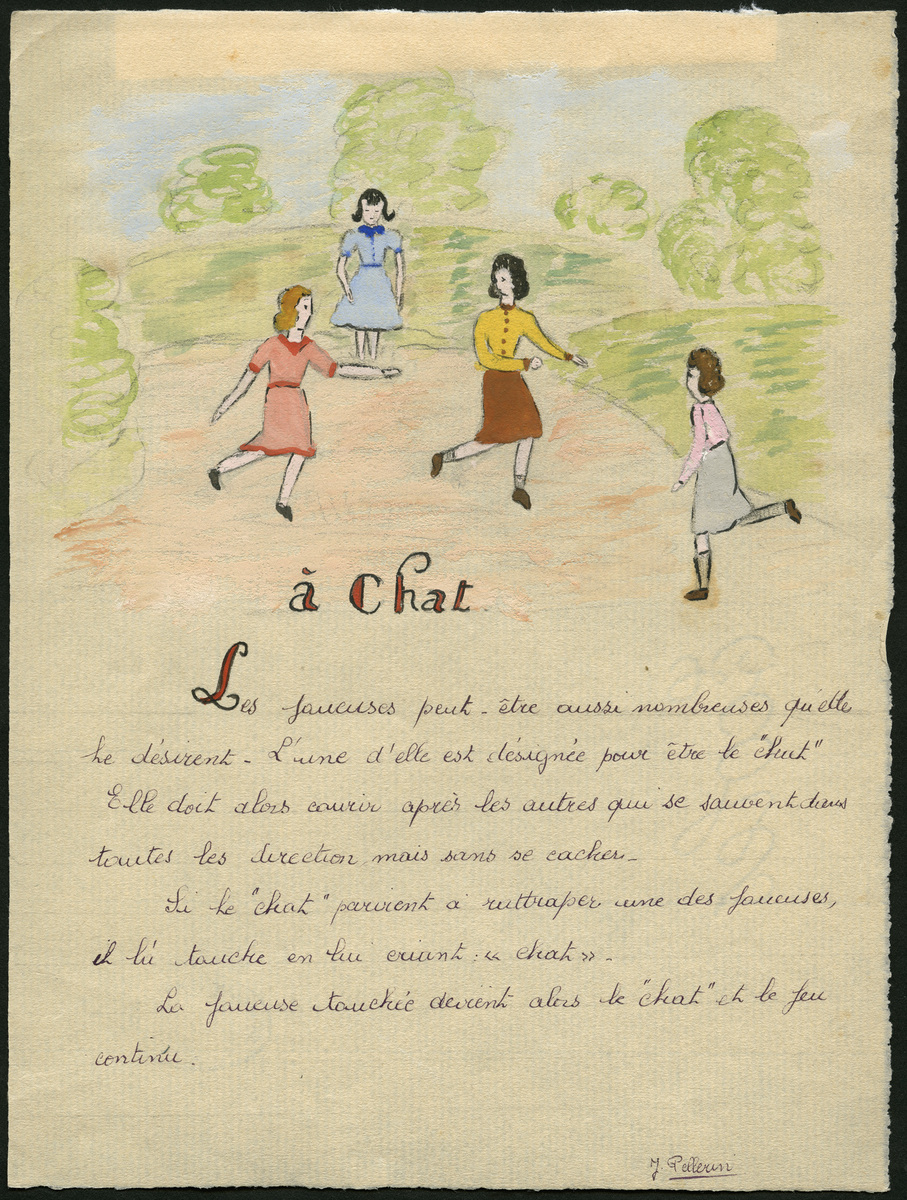 à Chat
Les joueuses peut-être aussi nombreuses qu'elle
le désirent - L'une d'elle est désignée pour être le "chat"
Elle doit alors courir après les autres qui se sauvent dans
toutes les direction mais sans se cacher -
Si le "chat" parvient à rattraper une des joueuses,
il la touche en lui criant : « chat » -
La joueuse touchée devient alors le "chat" et le jeu
continu.
J. Pellerin